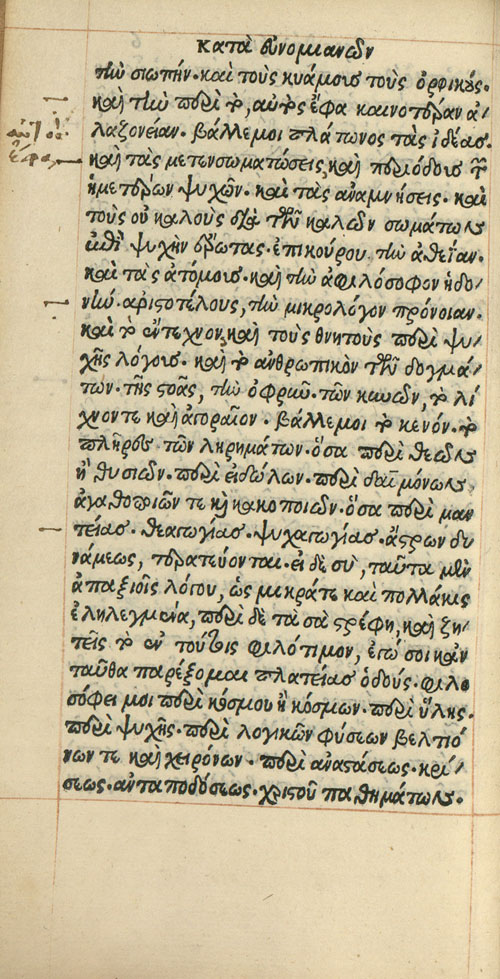 κατὰ εὐνομιανῶν
τὴν σιωπήν· καὶ τοὺς κυάμους τοὺς ὀρφικούς·
καὶ τὴν περὶ τὸ, αὐτὸς ἔφα καινοτέραν ἀ/
λαζονείαν· βάλλε μοι πλάτωνος τὰς ἰδέας·
καὶ τὰς μετενσωματώσεις, καὶ περιόδους τῶν
ἡμετέρων ψυχῶν· καὶ τὰς ἀναμνήσεις· καὶ
τοὺς οὐ καλοὺς διὰ τῶν καλῶν σωμάτων
ἐπὶ ψυχὴν ἔρωτας· ἐπικούρου τὴν ἀθεΐαν·
καὶ τὰς ἀτόμους· καὶ τὴν ἀφιλόσοφον ἡδο/
νήν· ἀριστοτέλους, τὴν μικρολόγον πρόνοιαν·
καὶ τὸ ἔντεχνον, καὶ τοὺς θνητοὺς περὶ ψυ/
χῆς λόγους· καὶ τὸ ἀνθρωπικὸν τῶν δογμά/
των· τῆς στοᾶς, τὴν ὀφρῦν· τῶν κυνῶν, τὸ λί
χνον τε καὶ ἀγοραῖον· βάλλε μοι τὸ κενόν· τὸ
πλῆρες τῶν ληρημάτων· ὅσα περὶ θεῶν
ἢ θυσιῶν· περὶ εἰδώλων· περὶ δαιμόνων
ἀγαθοποιῶν τε καὶ κακοποιῶν· ὅσα περὶ μαν
τείας· θεαγωγίας· ψυχαγωγίας· ἄστρων δυ
νάμεως, τερατεύονται· εἰ δὲ σὺ, ταῦτα μὲν
ἀπαξιοῖς λόγου, ὡς μικρά τε καὶ πολλάκις
ἐληλεγμένα, περὶ δὲ τὰ σὰ στρέφῃ, καὶ ζη/
τεῖς τὸ ἐν τούτοις φιλότιμον, ἐγώ σοι κἀν
ταῦθα παρέξομαι πλατείας ὁδούς· φιλο
σόφει μοι περὶ κόσμου ἢ κόσμων· περὶ ὕλης·
περὶ ψυχῆς· περὶ λογικῶν φύσεων βελτιό
νων τε καὶ χειρόνων· περὶ ἀναστάσεως· κρί/
σεως· ἀνταποδόσεως· χριστοῦ παθημάτων·